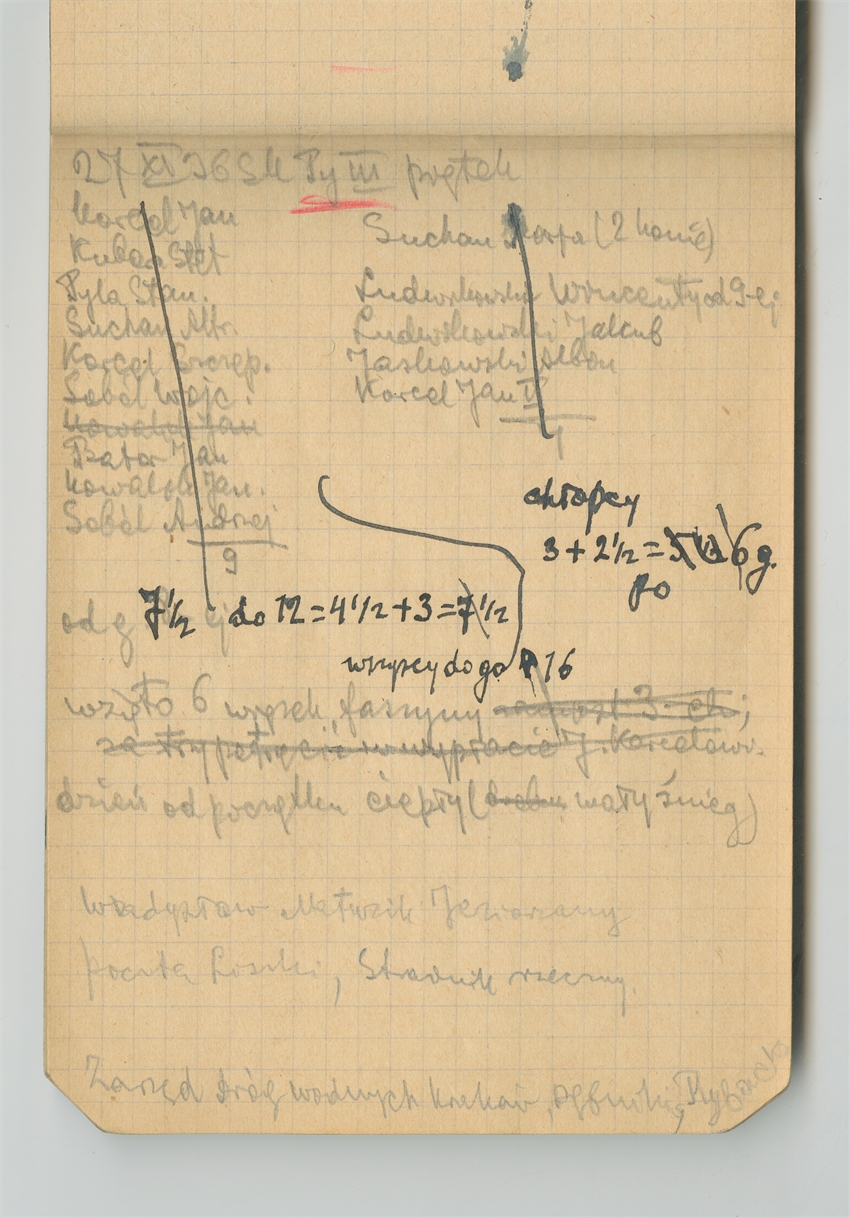 27 XI 36 Sk Py III piątek
Korcel Jan
Kuban Stef
Pyla Stan.
Suchan Altr.
Korcel Szczep.
Sobel Wojc.
Kowalik Jan
Bator Jan
Kowalik Jan.
Sobel Andrzej
9
Suchan (2 konie)
Ludwikowski Wincenty od 9-ej
Ludwikowski Jakub
Jaskowski Albin
Korcel Jan II
4
chłopcy
3 + 2 1/2 = 6 g.
po
od g 7 1/2 ej do 12 = 4 1/2 + 3 = 7 1/2
wszyscy do go 16
wzięto 6 faszyny 3-ch;
J. Korcelowi.
dzień od początku ciepły ( mały śnieg)
Władysław Matwzik Jeziorzany
poczta Liszki, Strażnik rzeczny.
Zarząd dróg wodnych Kraków, Rybacka